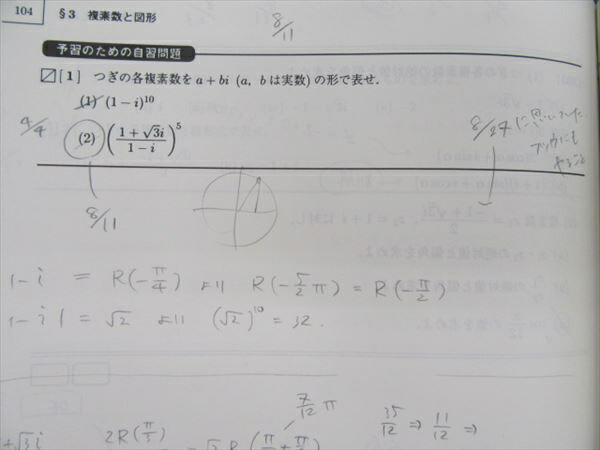 104 §3 複素数と図形
8/11
予習のための自習問題
[1] つぎの各複素数を a + bi (a, b は実数) の形で表せ.
(1) (1 − i)^10
4/4
(2) ((1 + √3i)/(1 − i))^5
8/27 に思いついた
8/11
1−i = R(−π/4) より R(−5/2 π) = R(−π/2)
1−i | = √2 より (√2)^10 = 32.
7/12 π
35/12 ⇒ 11/12 ⇒
+√3i 2R(π/3)